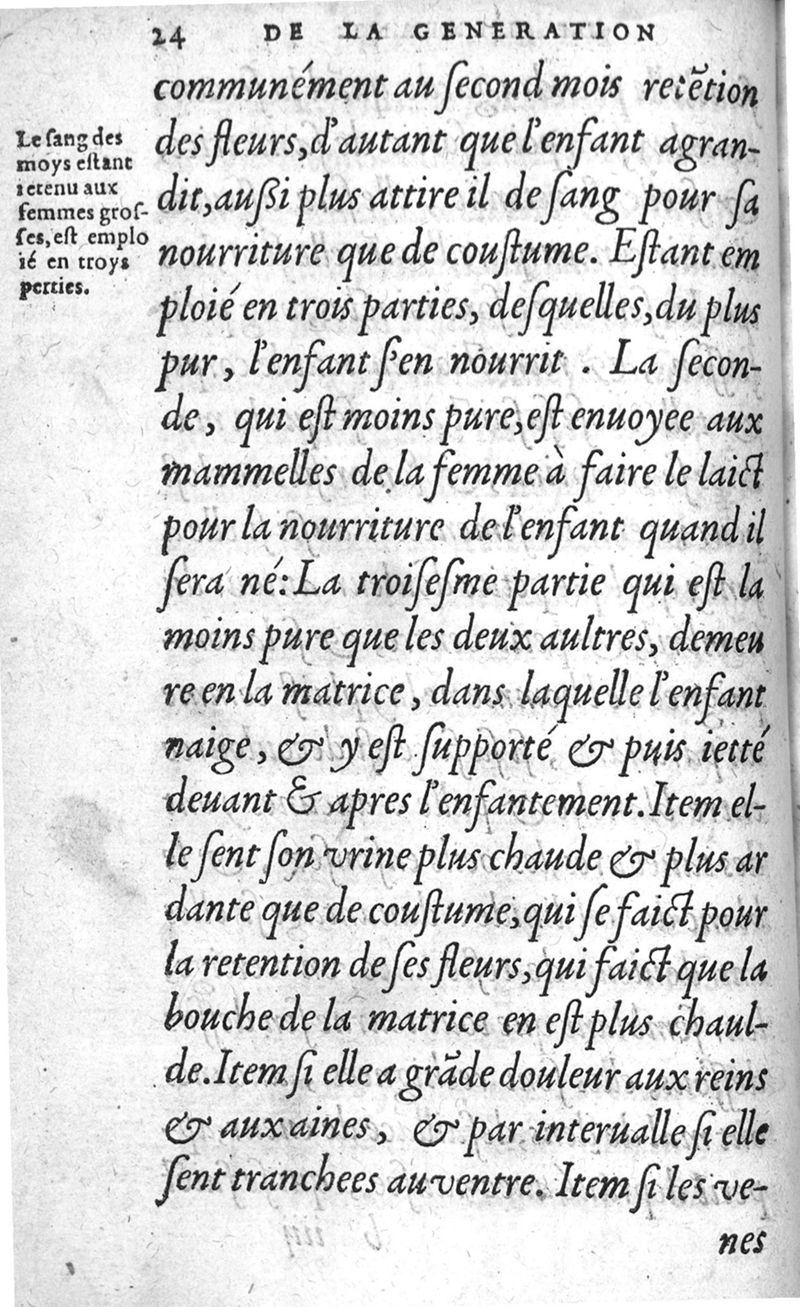 24 DE LA GENERATION
communément au ſecond mois retẽtion
des fleurs, d'autant que l'enfant agran-
dit, auſsi plus attire il de ſang pour ſa
nourriture que de couſtume. Eſtant em
ploié en trois parties, deſquelles, du plus
pur, l'enfant ſ'en nourrit. La ſecon-
de, qui eſt moins pure, eſt enuoyee aux
mammelles de la femme à faire le laict
pour la nourriture de l'enfant quand il
ſera né: La troiſeſme partie qui eſt la
moins pure que les deux aultres, demeu
re en la matrice, dans laquelle l'enfant
naige, & y eſt ſupporté & puis ietté
deuant & apres l'enfantement. Item el-
le ſent ſon vrine plus chaude & plus ar
dante que de couſtume, qui ſe faict pour
la retention de ſes fleurs, qui faict que la
bouche de la matrice en eſt plus chaul-
de. Item ſi elle a grãde douleur aux reins
& aux aines, & par interualle ſi elle
ſent tranchees au ventre. Item ſi les ve-
nes
Le ſang des
moys eſtant
retenu aux
femmes groſ-
ſes, eſt emplo
ié en troys
perties.